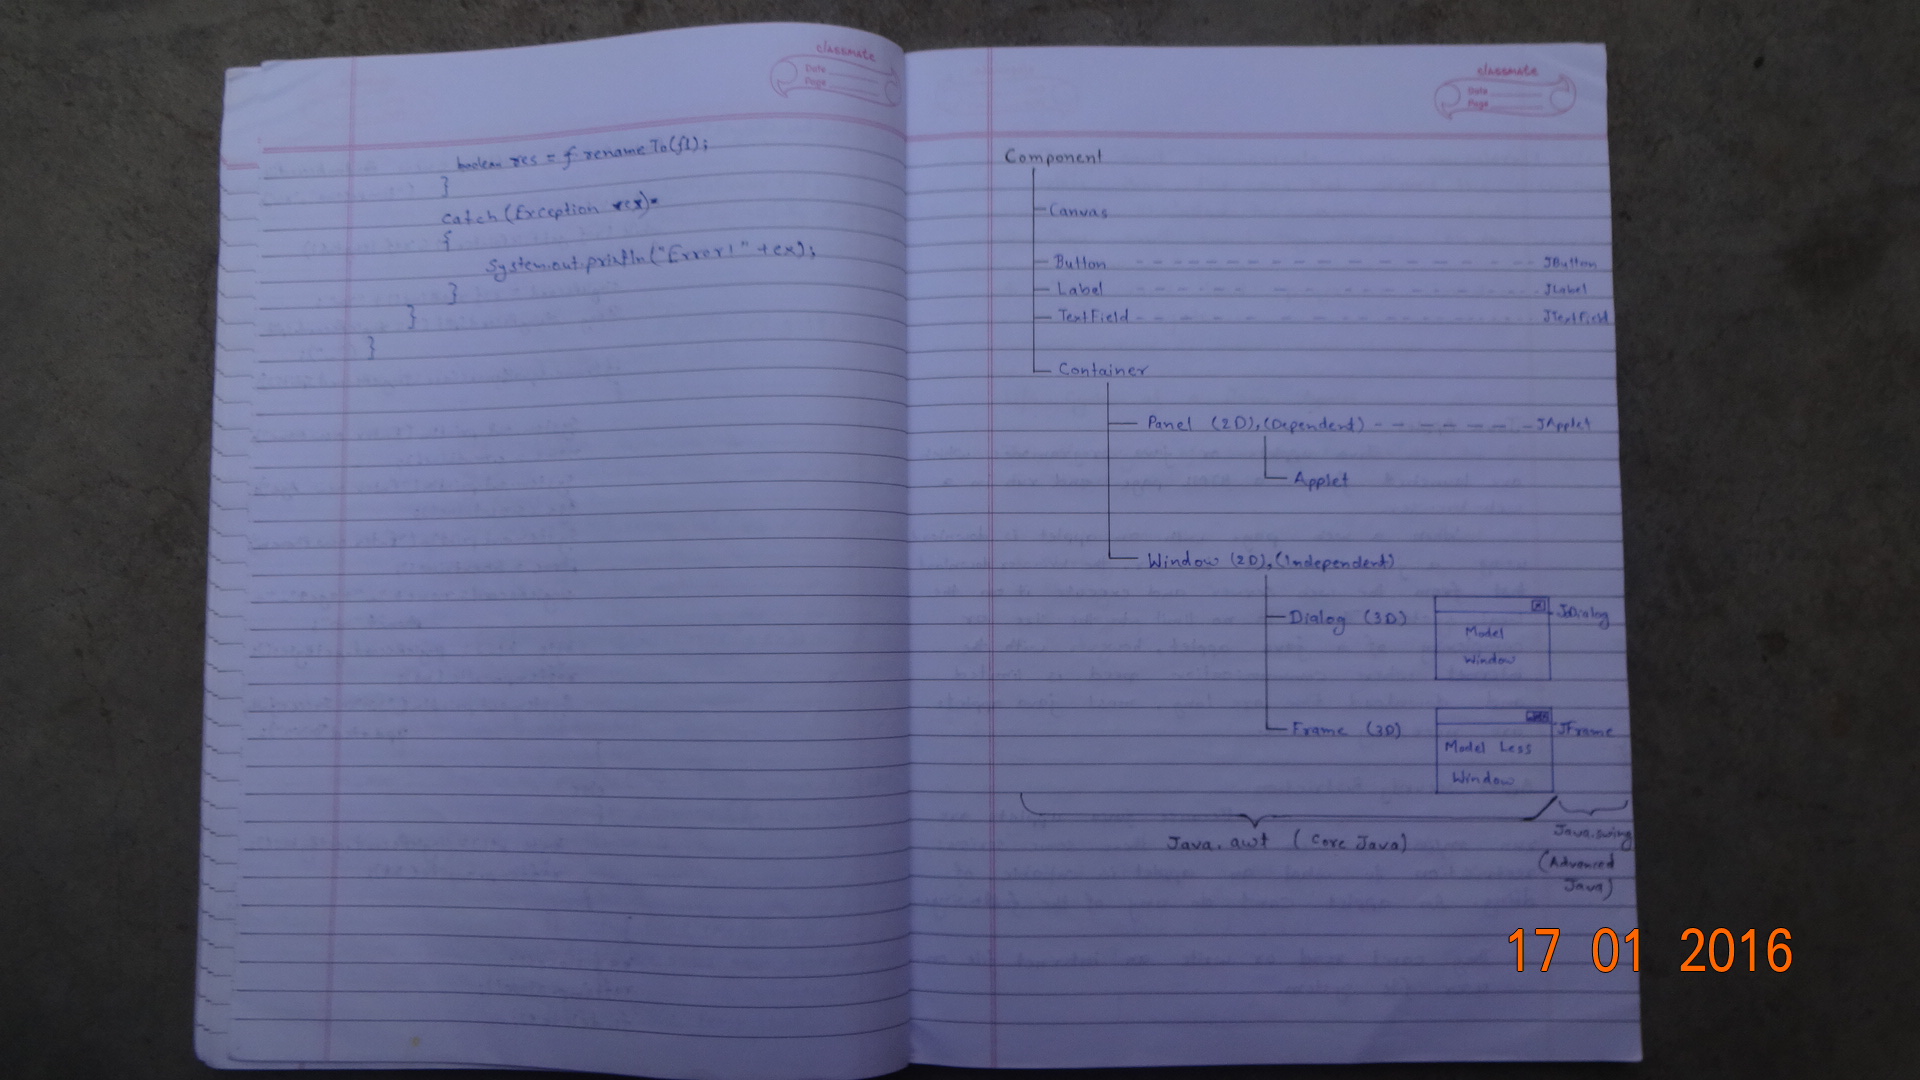 classmate
Date
Page
boolean res = f.renameTo(f1);
}
catch (Exception ex)
{
System.out.println("Error!" + ex);
}
}
}
classmate
Date
Page
Component
Canvas
Button JButton
Label JLabel
TextField JTextField
Container
Panel (2D), (Dependent) JApplet
Applet
Window (2D), (Independent)
Dialog (3D) JDialog
Model
Window
Frame (3D) JFrame
Model Less
Window
Java.awt (Core Java) Java.swing
(Advanced
Java)
17 01 2016